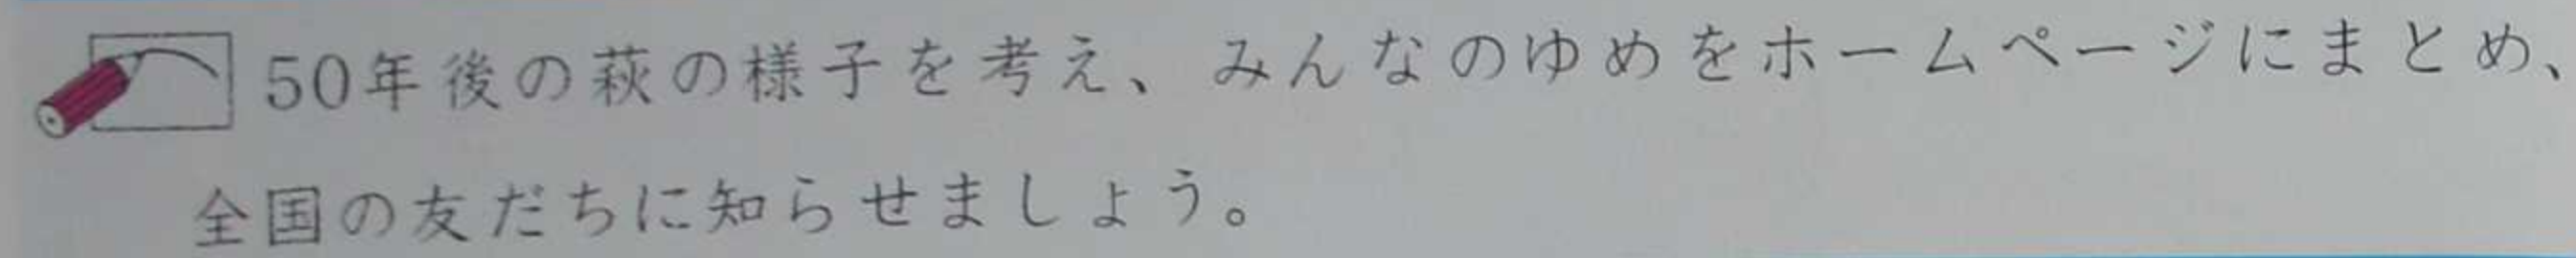 50年後の萩の様子を考え、みんなのゆめをホームページにまとめ、
全国の友だちに知らせましょう。